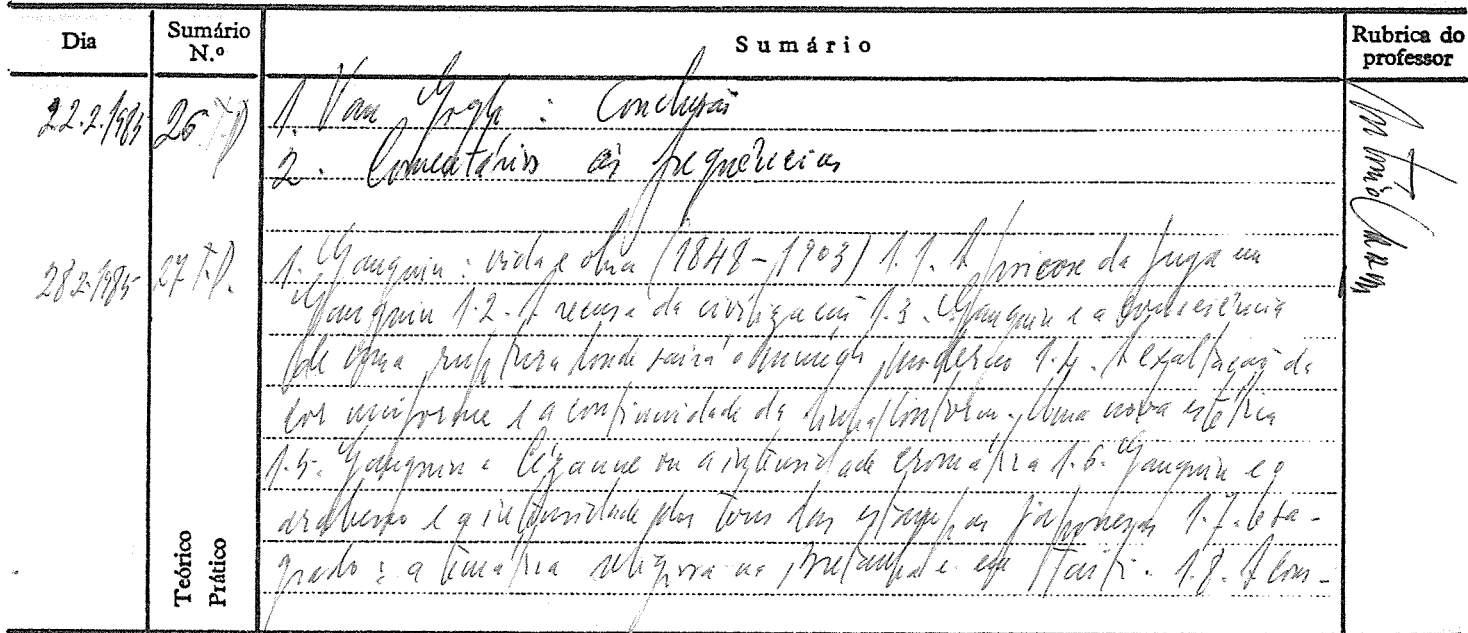 Dia
Sumário N.º
Sumário
Rubrica do professor
22.2.1985 26 T.P 1. Van Gogh : Conclusão
2. Comentários às frequências
28.2.1985 27 T.P. 1. Gauguin : vida e obra (1848-1903) 1.1. A psicose da fuga em
Gauguin 1.2. A recusa da civilização 1.3. Gauguin e a consciência
de uma ruptura donde sairá o moderno 1.4. A exaltação da
cor uniforme e a continuidade da linha contorno. Uma nova estética
1.5. Gauguin e Cézanne ou a intensidade cromática 1.6. Gauguin e o
arabesco e a intensidade dos tons das estampas japonesas 1.7. O sa-
grado : a temática religiosa na Bretanha e em Taiti. 1.8. A com-
Teórico
Prático
António